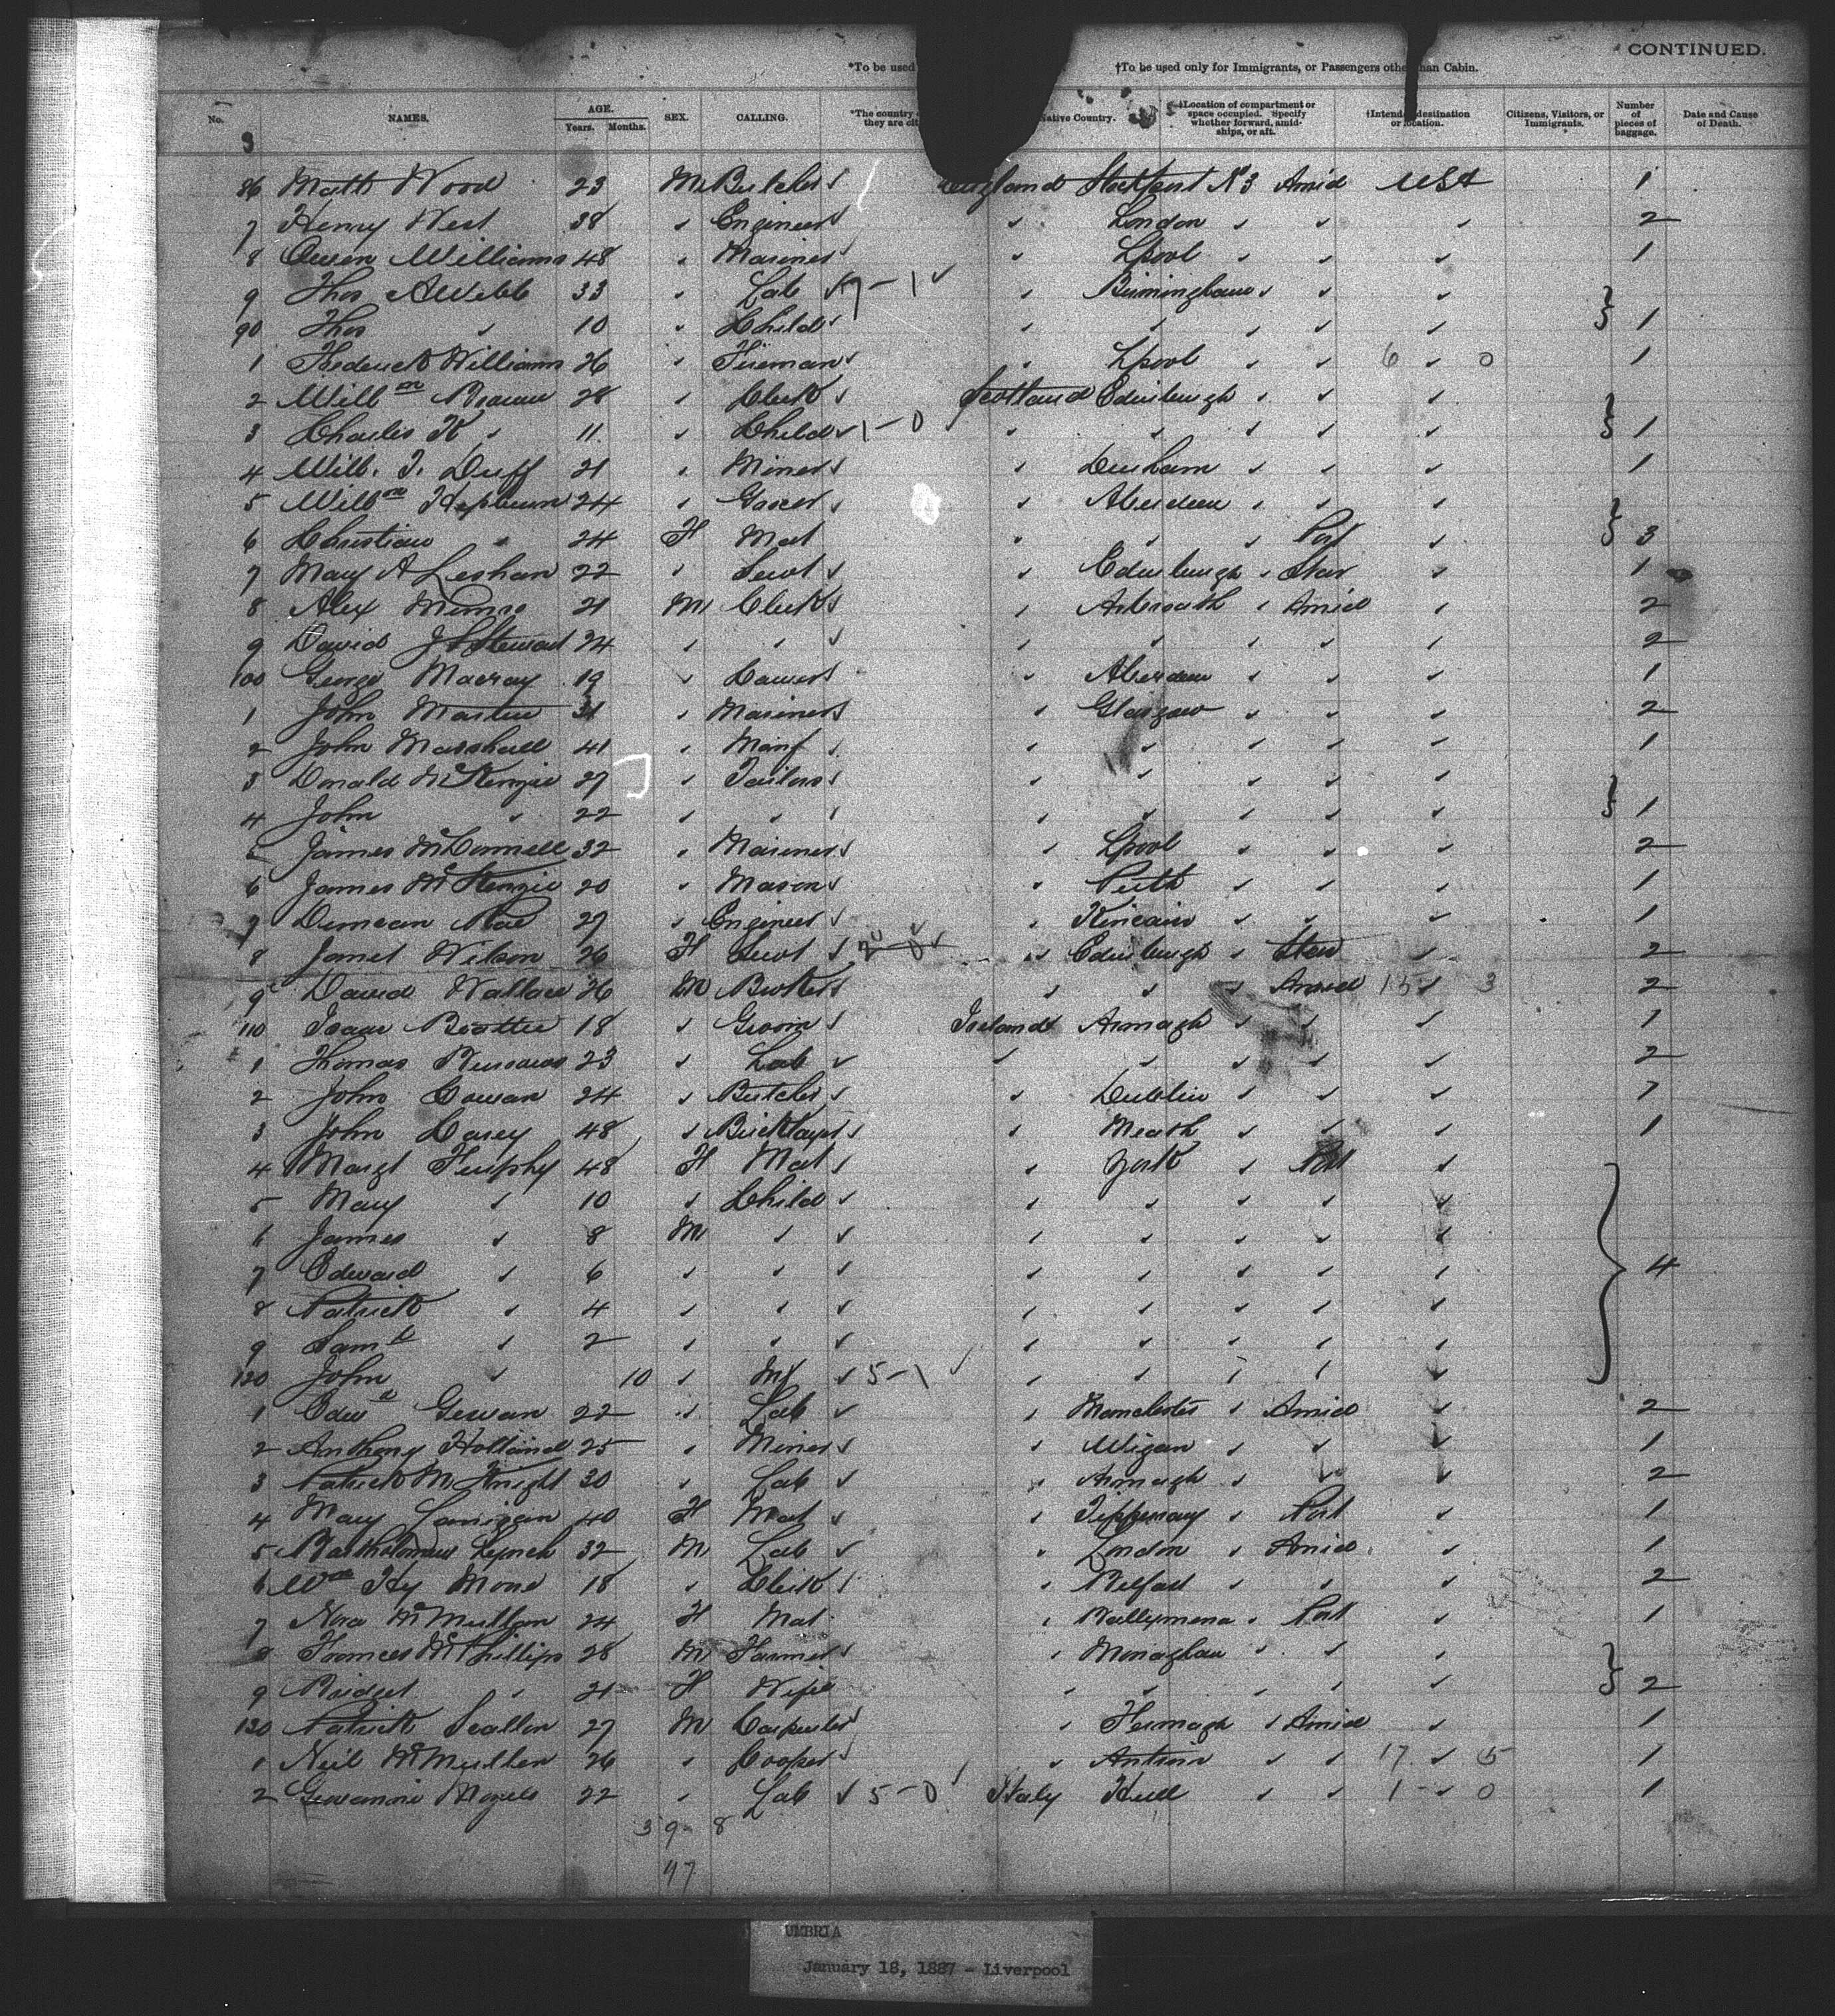 CONTINUED.
*To be used †To be used only for Immigrants, or Passengers other than Cabin.
No. NAMES. AGE. Years. Months. SEX. CALLING. *The country they are cit Native Country. †Location of compartment or space occupied. Specify whether forward, amidships, or aft. †Intended destination or location. Citizens, Visitors, or Immigrants. Number of pieces of baggage. Date and Cause of Death.
3
86 Matt Wood 23 M Butcher England Stockport No 3 Amid USA 1
7 Henry West 38 Engineer London 2
8 Owen Williams 48 Mariner Lpool 1
9 Thos A Webb 33 Lab 7-1 Birmingham
90 Thos 10 Child 1
1 Frederick Williams 26 Fireman Lpool 6 0 1
2 Willm Brown 28 Clerk Scotland Edinburgh
3 Charles K 11 Child 1-0 1
4 Will. J. Duff 21 Miner Durham 1
5 Willm Hepburn 24 Grocer Aberdeen
6 Christian 24 F Mat Port 3
7 Mary A Leshan 22 Servt Edinburgh Star 1
8 Alex Munro 21 M Clerk Arbroath Amid 2
9 David J Stewart 24 2
100 George Macray 19 Aberdeen 1
1 John Martin 31 Mariner Glasgow 2
2 John Marshall 41 Manf 1
3 Donald McKenzie 27 Tailors
4 John 22 1
5 James McConnell 32 Mariner Lpool 2
6 James McKenzie 20 Mason Perth 1
7 Duncan Rae 27 Engineer 1
8 Janet Wilson 26 F Servt Edinburgh Star 2
9 David Wallace 26 M Amid 15 3 2
110 Isaac Beattie 18 Groom Ireland Armagh 1
1 Thomas 23 Lab 2
2 John Cowan 24 Butcher Dublin 1
3 John Casey 48 Bricklayer Meath 1
4 Margt Furphy 48 F Mat York Port
5 Mary 10 Child
6 James 8 M
7 Edward 6 4
8 Patrick 4
9 Saml 2
120 John 10 5-1
1 Edwd Gewan 22 Lab Manchester Amid 2
2 Anthony Holland 25 Miner Wigan 1
3 Patrick McKnight 30 Lab Armagh 2
4 Mary Lanigan 40 F Mat Tipperary Port 1
5 Bartholomew Lynch 32 M Lab London Amid 1
6 Wm Hy Mone 18 Clerk Belfast 2
7 Nora McMullan 24 F Mat Ballymena Port 1
8 Frances McPhillips 28 M Farmer Monaghan
9 Bridget 21 F Wife 2
130 Patrick Scallon 27 M Carpenter Fermagh Amid 1
1 Neil McMullen 26 Cooper Antrim 17 5 1
2 22 Lab 5-0 Italy Hull 1 0 1
39 8
47
UMBRIA
January 18, 1887 - Liverpool